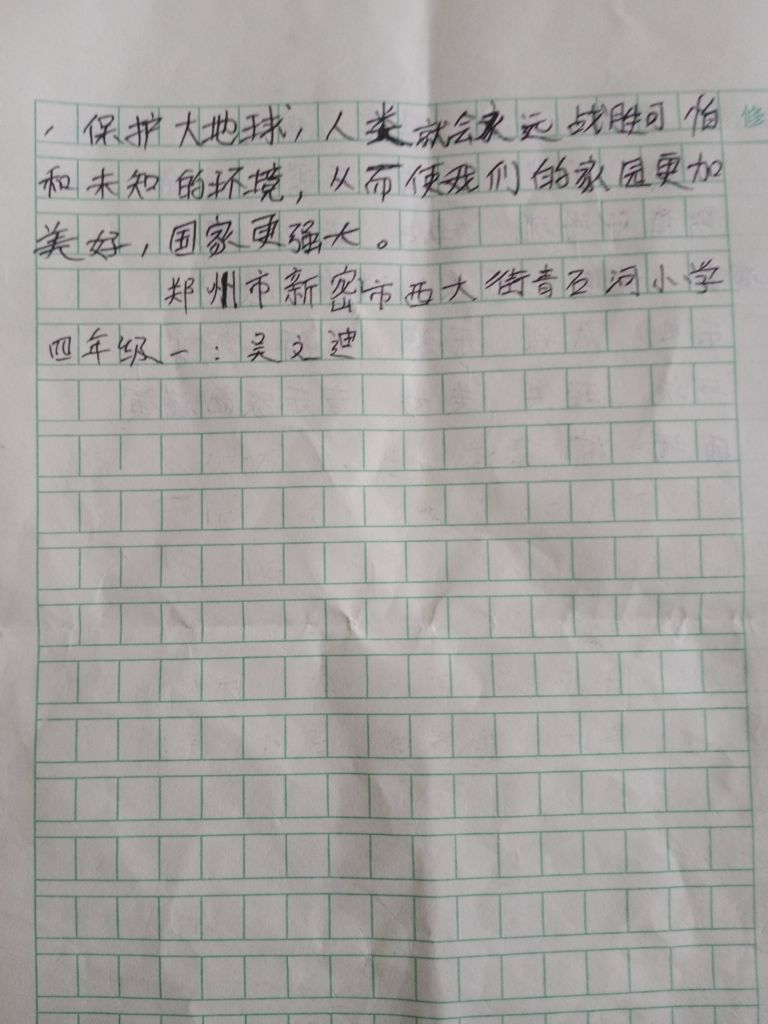 ，保护大地球，人类就会永远战胜可怕
和未知的环境，从而使我们的家园更加
美好，国家更强大。
郑州市新密市西大街青石河小学
四年级一：吴文迪
修